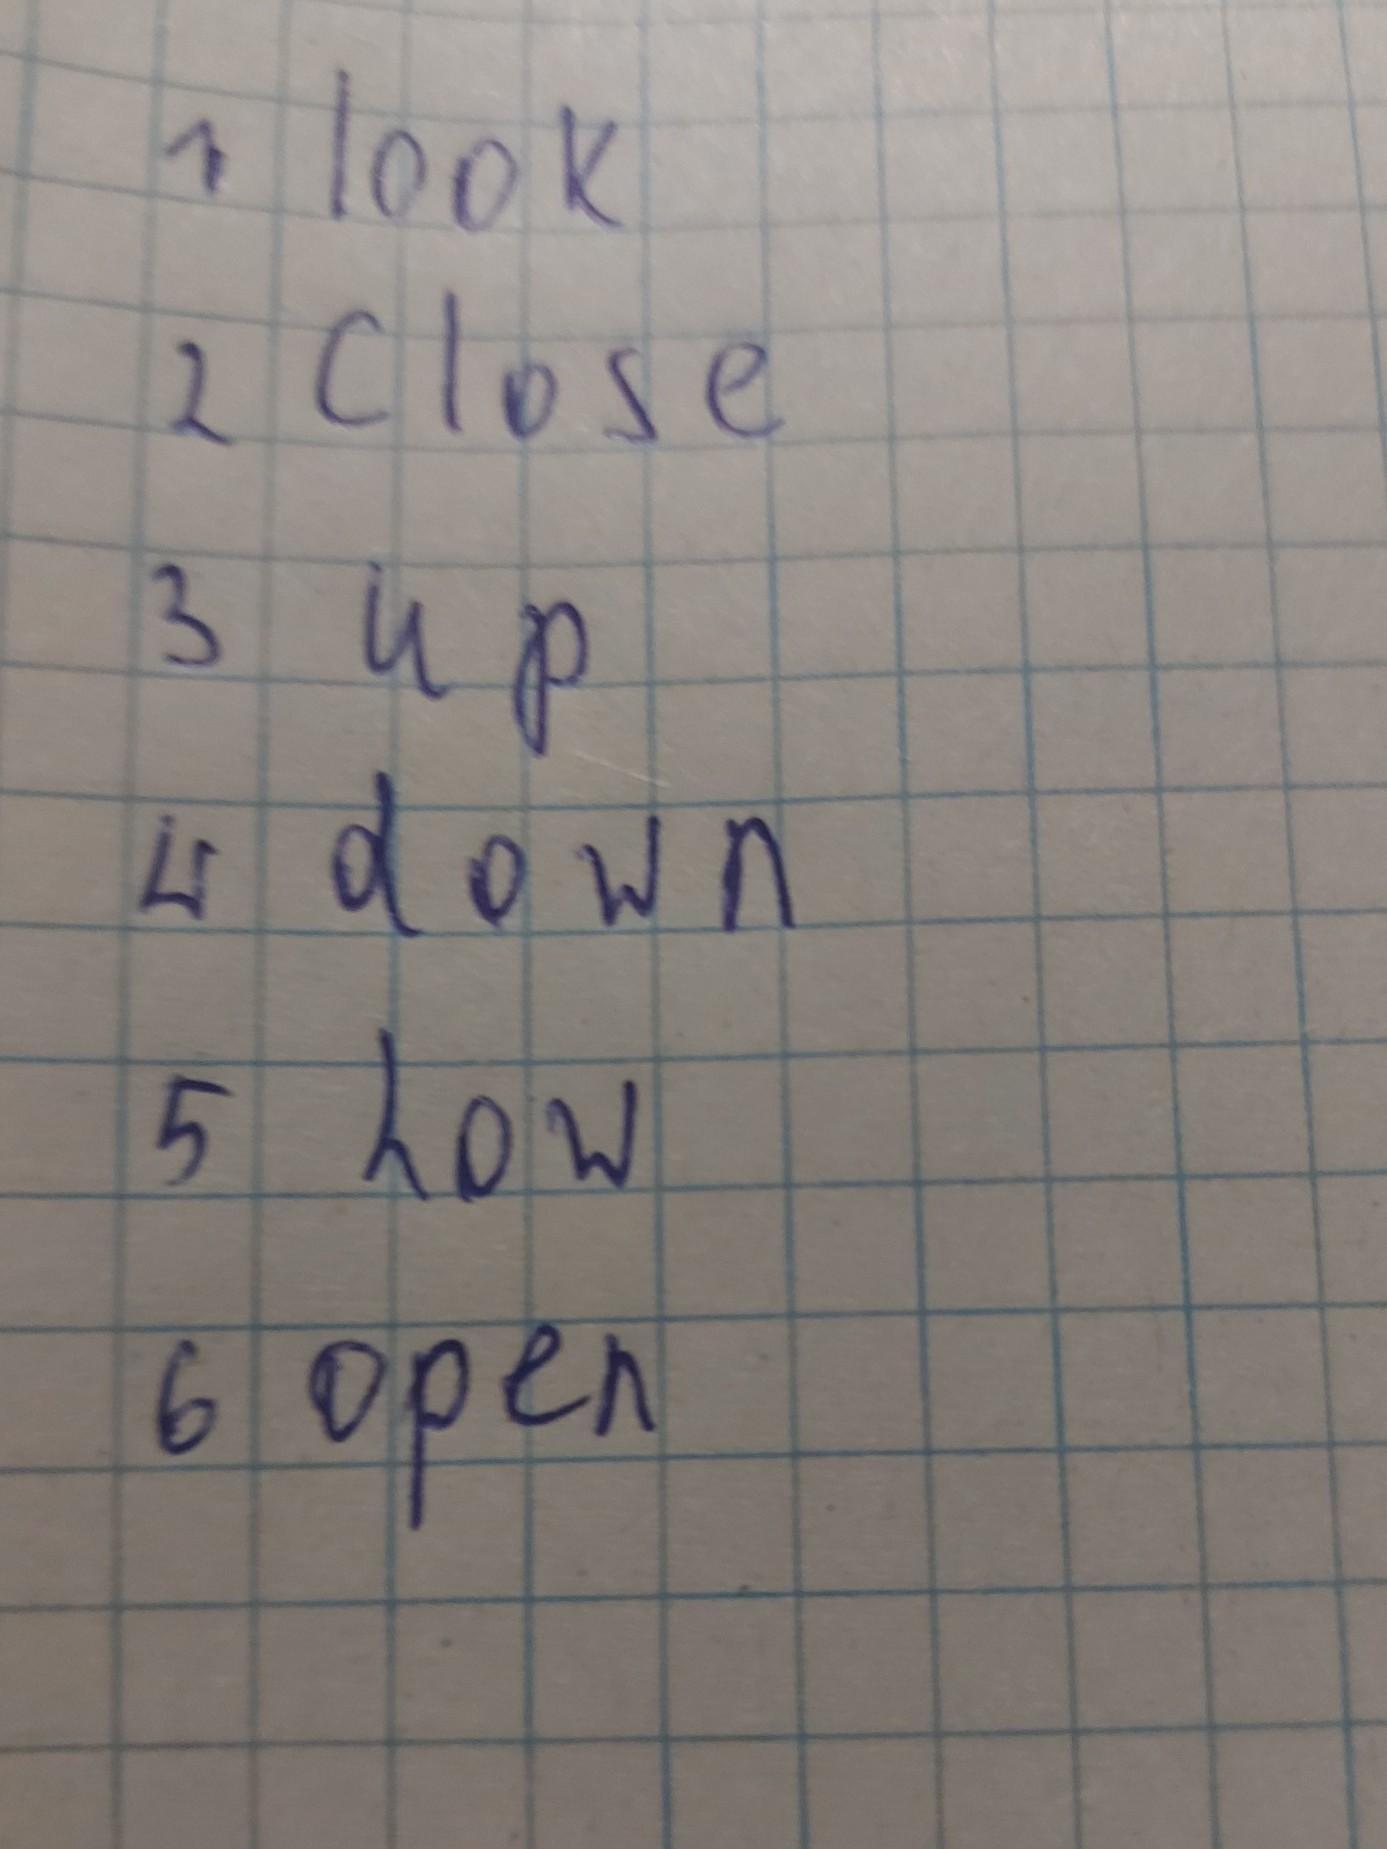 1 look
2 Close
3 up
4 down
5 how
6 open